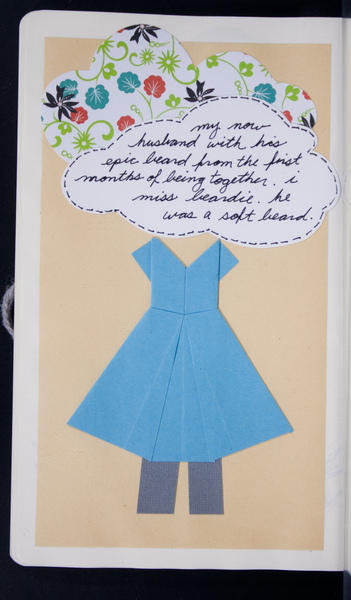 my now
husband with his
epic beard from the first
months of being together. i
miss beardie. he
was a soft beard.